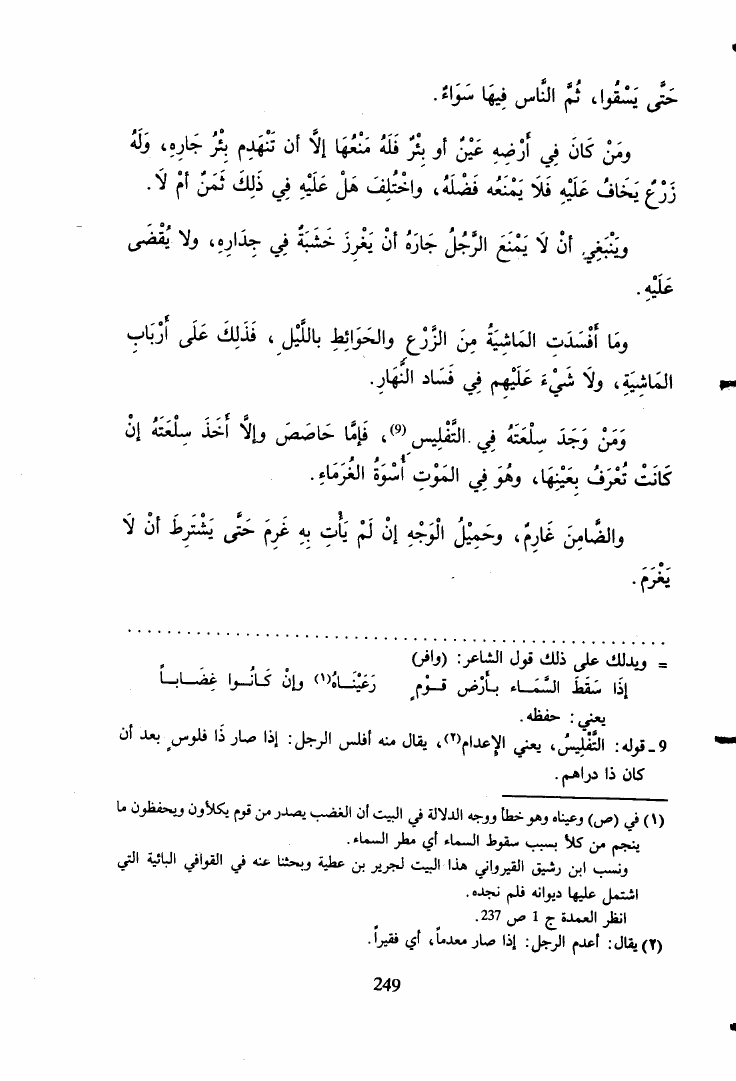 حَتَّى يَسْقُوا، ثُمَّ النَّاس فِيهَا سَوَاءٌ.
ومَنْ كَانَ فِي أَرْضِهِ عَيْنٌ أو بِئْرٌ فَلَهُ مَنْعُهَا إلاَّ أن تَنْهَدِم بِئْرُ جَارِهِ، وَلَهُ
زَرْعٌ يَخَافُ عَلَيْهِ فَلَا يَمْنَعُه فَضْلَهُ، واخْتُلِفَ هَلْ عَلَيْهِ فِي ذَلِكَ ثَمَنٌ أمْ لَا.
ويَنْبَغِي أنْ لَا يَمْنَعَ الرَّجُلُ جَارَهُ أنْ يَغْرِزَ خَشَبَةً فِي جِدَارِهِ، ولا يُقْضَى
عَلَيْهِ.
ومَا أَفْسَدَتِ المَاشِيَةُ مِنَ الزَّرْعِ والحَوَائِطِ باللَّيْلِ، فَذَلِكَ عَلَى أَرْبَابِ
المَاشِيَةِ، ولَا شَيْءَ عَلَيْهِم فِي فَسَادِ النَّهَارِ.
وَمَنْ وَجَدَ سِلْعَتَهُ فِي التَّفْلِيسِ(9)، فَإمَّا حَاصَصَ وإلاَّ أَخَذَ سِلْعَتَهُ إنْ
كَانَتْ تُعْرَفُ بِعَيْنِهَا، وهُوَ فِي المَوْتِ أُسْوَةُ الغُرَمَاءِ.
والضَّامِنَ غَارِمٌ، وحَمِيْلُ الْوَجْهِ إنْ لَمْ يَأْتِ بِهِ غَرِمَ حَتَّى يَشْتَرِطَ أنْ لَا
يَغْرَمَ.
= ويدلك على ذلك قول الشاعر: (وافر)
إذَا سَقَطَ السَّمَاء بأرْض قَوْمٍ رَعَيْنَاهُ(١) وإنْ كَانُوا غِضَاباً
يعني: حفظه.
9 - قوله: التَّفْلِيسُ، يعني الإعدام(٢)، يقال منه أفلس الرجل: إذا صار ذَا فلوسٍ بعد أن
كان ذا دراهم.
(١) في (ص) وعيناه وهو خطأ ووجه الدلالة في البيت أن الغضب يصدر من قوم يكلأون ويحفظون ما
ينجم من كلأ بسبب سقوط السماء أي مطر السماء.
ونسب ابن رشيق القيرواني هذا البيت لجرير بن عطية وبحثنا عنه في القوافي البائية التي
اشتمل عليها ديوانه فلم نجده.
انظر العمدة ج 1 ص 237.
(٢) يقال: أعدم الرجل: إذا صار معدماً، أي فقيراً.
249